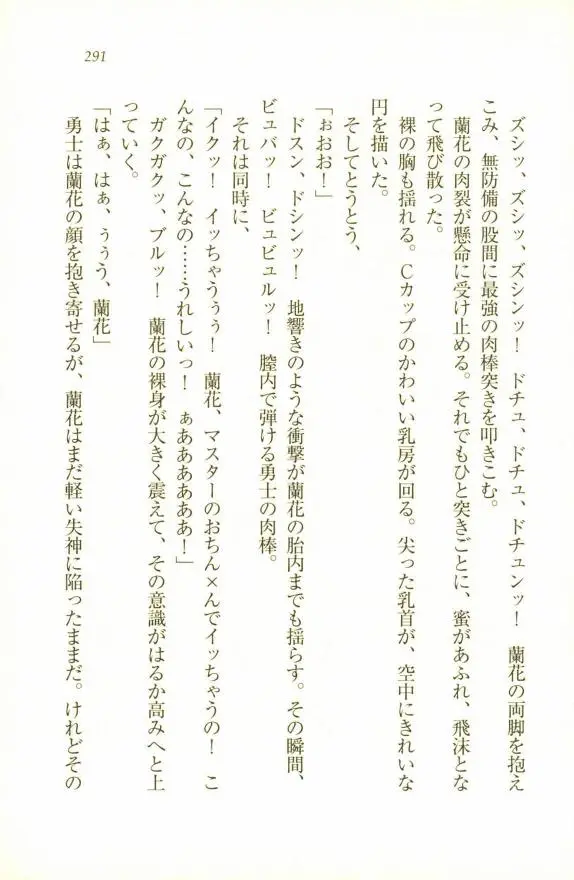 291
ズシッ、ズシッ、ズシンッ！　ドチュ、ドチュ、ドチュンッ！　蘭花の両脚を抱え
こみ、無防備の股間に最強の肉棒突きを叩きこむ。
蘭花の肉裂が懸命に受け止める。それでもひと突きごとに、蜜があふれ、飛沫とな
って飛び散った。
裸の胸も揺れる。Ｃカップのかわいい乳房が回る。尖った乳首が、空中にきれいな
円を描いた。
そしてとうとう、
「ぉおお！」
ドスン、ドシンッ！　地響きのような衝撃が蘭花の胎内までも揺らす。その瞬間、
ビュバッ！　ビュビュルッ！　膣内で弾ける勇士の肉棒。
それは同時に、
「イクッ！　イッちゃうぅぅ！　蘭花、マスターのおちん×んでイッちゃうの！　こ
んなの、こんなの……うれしいっ！　ぁああああああ！」
ガクガクッ、ブルッ！　蘭花の裸身が大きく震えて、その意識がはるか高みへと上
っていく。
「はぁ、はぁ、ぅぅう、蘭花」
勇士は蘭花の顔を抱き寄せるが、蘭花はまだ軽い失神に陥ったままだ。けれどその